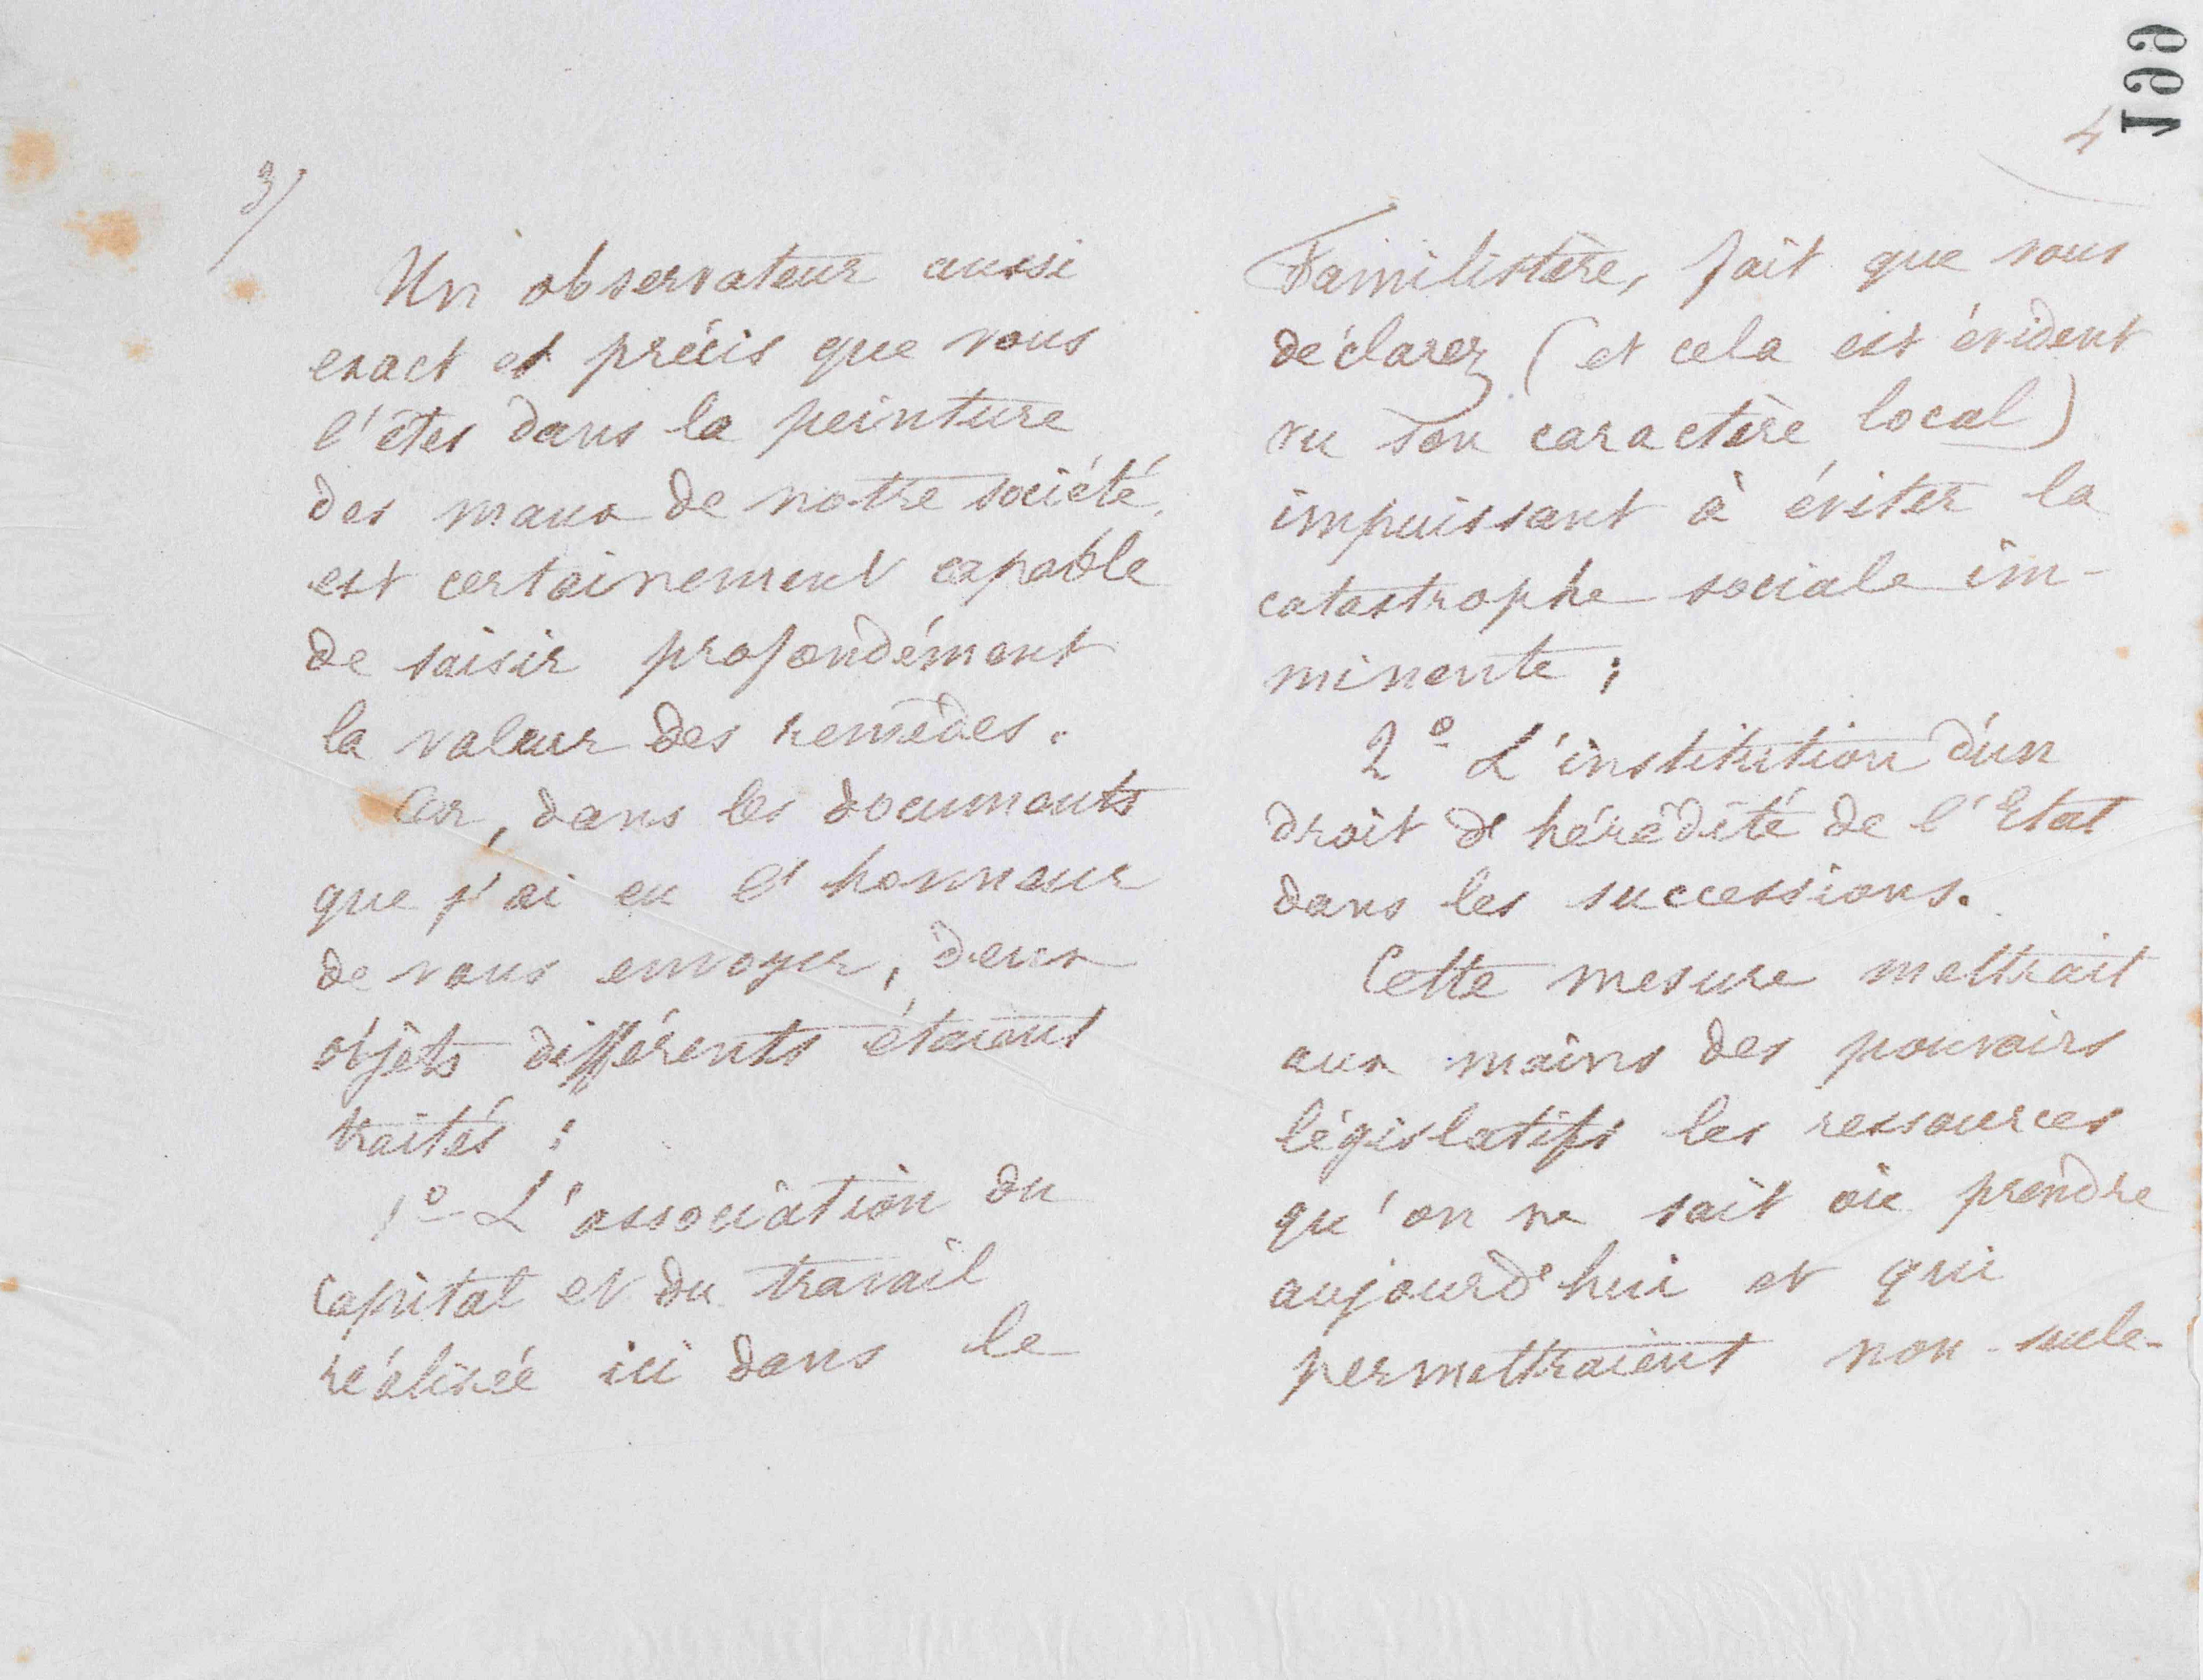 3/
Un observateur aussi
exact et précis que vous
l'êtes dans la peinture
des maux de notre société,
est certainement capable
de saisir profondément
la valeur des remèdes.
Or, dans les documents
que j'ai eu l'honneur
de vous envoyer, deux
objets différents étaient
traités :
1º L'association du
Capital et du travail
réalisée ici dans le
199
4
Familistère, fait que vous
déclarez (et cela est évident
vu son caractère local)
impuissant à éviter la
catastrophe sociale im-
minente ;
2º L'institution d'un
droit d'hérédité de l'Etat
dans les successions.
Cette mesure mettrait
aux mains des pouvoirs
législatifs les ressources
qu'on ne sait où prendre
aujourd'hui et qui
permettraient non-seule-